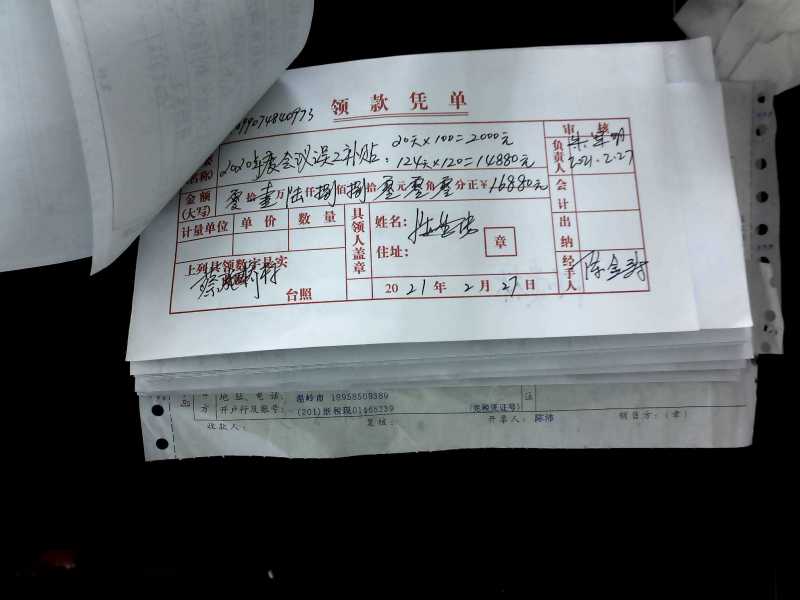 领款凭单
99074840973
审核
名称 2020年度会议误工补贴: 20天×100=2000元
124天×120=14880元
负责人 2021.2.27
金额(大写) 零拾壹万陆仟捌佰捌拾零元零角零分正¥16880元
会计
计量单位 单价 数量
具领人盖章
姓名:
住址:
章
出纳
上列具领数字是实
台照
2021年2月27日
经手人
地址、电话: 温岭市 18958508389
方 开户行及账号: (201)浙税现01468239 (完税凭证号)
注
收款人: 复核: 开票人: 陈沛 销售方:(章)